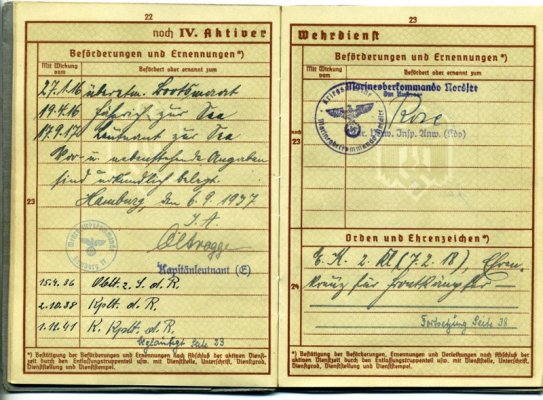 22
noch IV. Aktiver
Beförderungen und Ernennungen*)
Mit Wirkung vom
Befördert oder ernannt zum
27.1.16 überzm. Bootsmaat
19.4.16 Fähnrich zur See
17.9.17 Leutnant zur See
Vor- u. nebenstehende Angaben
sind urkundlich belegt.
23
Hamburg, 6.9.1937
I.A.
Oltrogge
Kapitänleutnant (E)
15.9.36 Oblt. z. S. d. R.
2.10.38 Kplt. d. R.
1.11.41 K. Kpt. d. R.
Beglaubigt Seite 33
*) Bestätigung der Beförderungen und Ernennungen nach Abschluß der aktiven Dienst-
zeit durch den Entlassungstruppenteil usw. mit Dienststelle, Unterschrift, Dienstgrad,
Dienststellung und Dienststempel.
23
Wehrdienst
Beförderungen und Ernennungen*)
Mit Wirkung vom
Befördert oder ernannt zum
Marineoberkommando Nordsee
Rose
Insp. Anw. (Kdo)
noch
23
Orden und Ehrenzeichen*)
E. K. 2. Kl. (7.2.18), Ehren-
24
kreuz für Frontkämpfer
Fortsetzung Seite 38
*) Bestätigung der Beförderungen, Ernennungen und Verleihungen nach Abschluß der
aktiven Dienstzeit durch den Entlassungstruppenteil usw. mit Dienststelle, Unterschrift,
Dienstgrad, Dienststellung und Dienststempel.